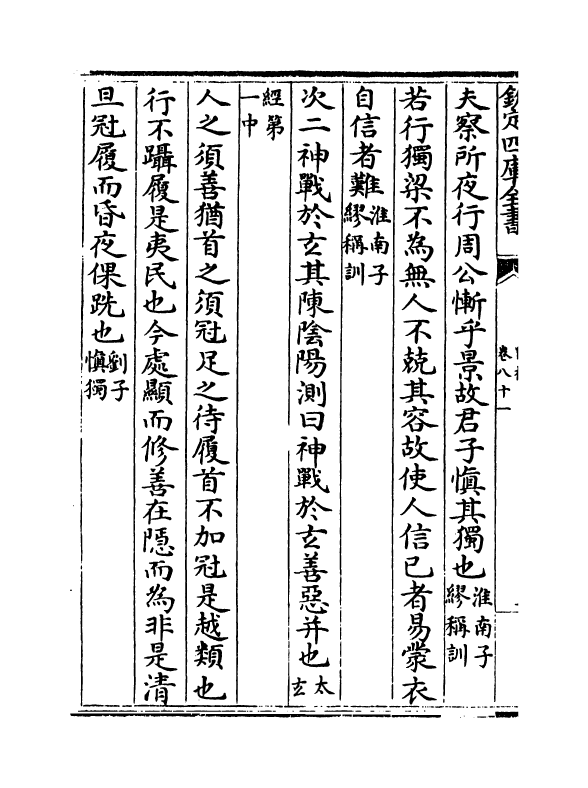 欽定四庫全書
卷八十一
夫察所夜行周公慚乎景故君子慎其獨也淮南子繆稱訓
若行獨梁不為無人不兢其容故使人信已者易蒙衣
自信者難淮南子繆稱訓
次二神戰於玄其陳陰陽測曰神戰於玄善惡并也太玄
經第一中
人之須善猶首之須冠足之待履首不加冠是越類也
行不躡履是夷民也今處顯而修善在隱而為非是清
旦冠履而昏夜倮跣也劉子慎獨